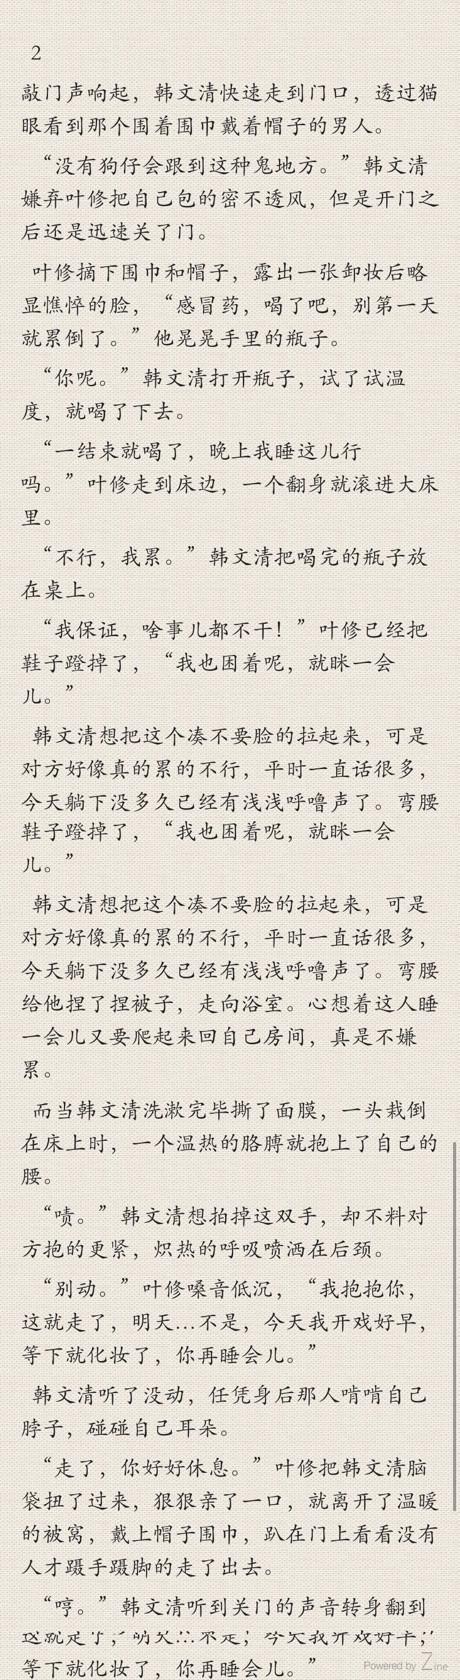 2
敲门声响起，韩文清快速走到门口，透过猫
眼看到那个围着围巾戴着帽子的男人。
“没有狗仔会跟到这种鬼地方。”韩文清
嫌弃叶修把自己包的密不透风，但是开门之
后还是迅速关了门。
叶修摘下围巾和帽子，露出一张卸妆后略
显憔悴的脸，“感冒药，喝了吧，别第一天
就累倒了。”他晃晃手里的瓶子。
“你呢。”韩文清打开瓶子，试了试温
度，就喝了下去。
“一结束就喝了，晚上我睡这儿行
吗。”叶修走到床边，一个翻身就滚进大床
里。
“不行，我累。”韩文清把喝完的瓶子放
在桌上。
“我保证，啥事儿都不干！”叶修已经把
鞋子蹬掉了，“我也困着呢，就眯一会
儿。”
韩文清想把这个凑不要脸的拉起来，可是
对方好像真的累的不行，平时一直话很多，
今天躺下没多久已经有浅浅呼噜声了。弯腰
鞋子蹬掉了，“我也困着呢，就眯一会
儿。”
韩文清想把这个凑不要脸的拉起来，可是
对方好像真的累的不行，平时一直话很多，
今天躺下没多久已经有浅浅呼噜声了。弯腰
给他捏了捏被子，走向浴室。心想着这人睡
一会儿又要爬起来回自己房间，真是不嫌
累。
而当韩文清洗漱完毕撕了面膜，一头栽倒
在床上时，一个温热的胳膊就抱上了自己的
腰。
“啧。”韩文清想拍掉这双手，却不料对
方抱的更紧，炽热的呼吸喷洒在后颈。
“别动。”叶修嗓音低沉，“我抱抱你，
这就走了，明天…不是，今天我开戏好早，
等下就化妆了，你再睡会儿。”
韩文清听了没动，任凭身后那人啃啃自己
脖子，碰碰自己耳朵。
“走了，你好好休息。”叶修把韩文清脑
袋扭了过来，狠狠亲了一口，就离开了温暖
的被窝，戴上帽子围巾，趴在门上看看没有
人才蹑手蹑脚的走了出去。
“哼。”韩文清听到关门的声音转身翻到
这就走了，明天…不是，今天我开戏好早，
等下就化妆了，你再睡会儿。”
Powered by Zine